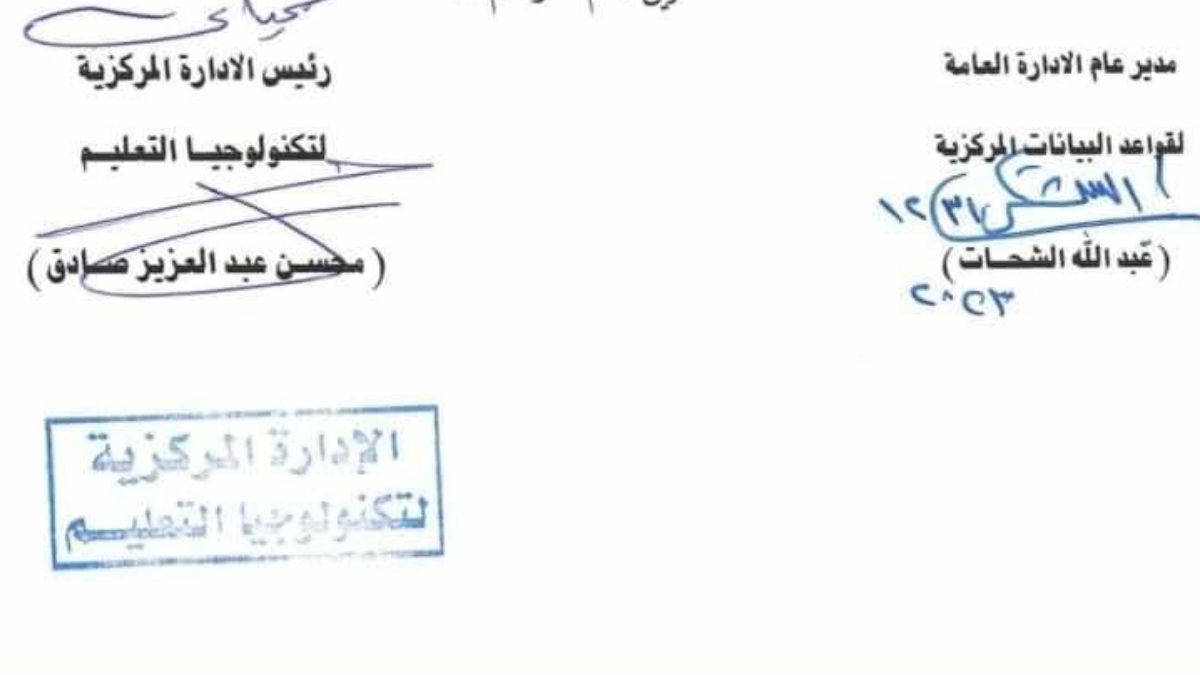 مدير عام الادارة العامة
لقواعد البيانات المركزية
٣١/١٢
(عبد الله الشحات)
٢٠٢٣
رئيس الادارة المركزية
لتكنولوجيــا التعليــم
(محســن عبد العزيز صــادق)
الإدارة المركزية
لتكنولوجيا التعليــم